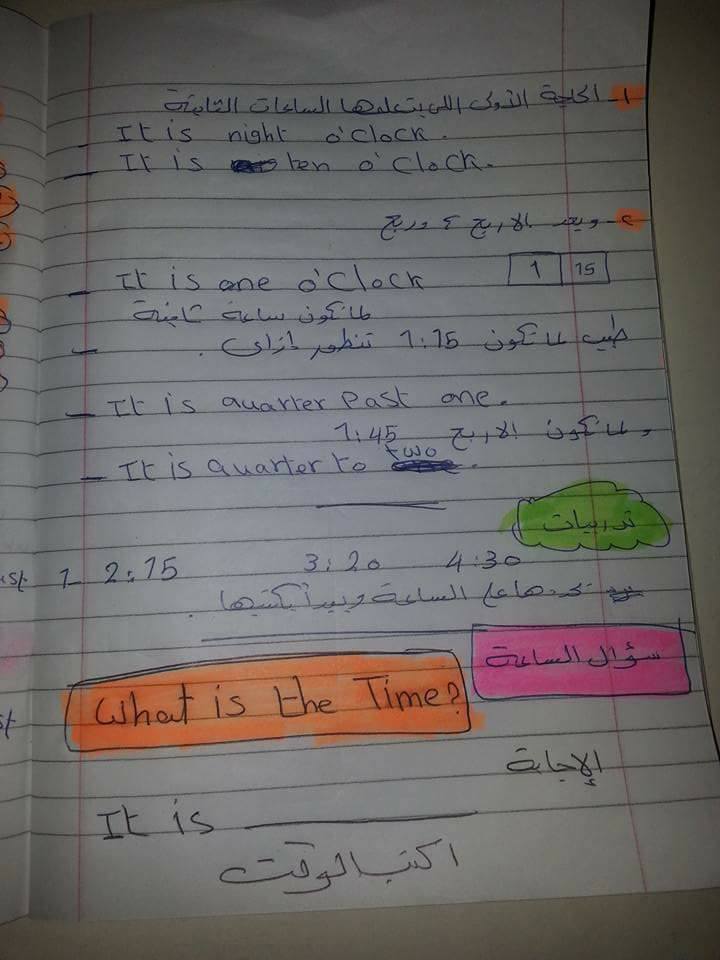 ١- الحاجة الأولى اللى بتعلمها الساعات الثابتة
- It is night o'clock.
- It is ten o'clock.
٢- وبعد الاربع و ربع
- It is one o'clock
1 15
لما تكون ساعة ثابتة
طيب لما تكون 1:15 تنطق ازاى .
- It is quarter past one.
ولما تكون الاربع 1:45
- It is quarter to two.
تدريبات
1- 2:15 3:20 4:30
على الساعة ويبدأ يكتبها .
سؤال الساعة
What is the Time?
الإجابة
It is
اكتب الوقت